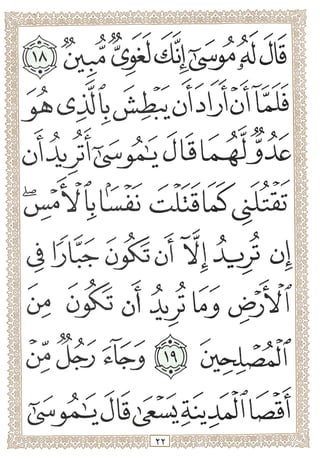 قَالَ لَهُۥ مُوسَىٰٓ إِنَّكَ لَغَوِىٌّ مُّبِينٌ ١٨
فَلَمَّآ أَنْ أَرَادَ أَن يَبْطِشَ بِٱلَّذِى هُوَ
عَدُوٌّ لَّهُمَا قَالَ يَـٰمُوسَىٰٓ أَتُرِيدُ أَن
تَقْتُلَنِى كَمَا قَتَلْتَ نَفْسًۢا بِٱلْأَمْسِ ۖ
إِن تُرِيدُ إِلَّآ أَن تَكُونَ جَبَّارًا فِى
ٱلْأَرْضِ وَمَا تُرِيدُ أَن تَكُونَ مِنَ
ٱلْمُصْلِحِينَ ١٩ وَجَآءَ رَجُلٌ مِّنْ
أَقْصَا ٱلْمَدِينَةِ يَسْعَىٰ قَالَ يَـٰمُوسَىٰٓ
٢٢